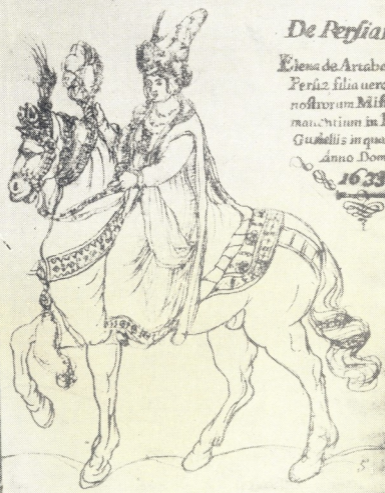 De Persia
Elena de Artab
Persiæ filia vero
nostrorum Miss
manentium in
in qua
Anno Dom
1633
5